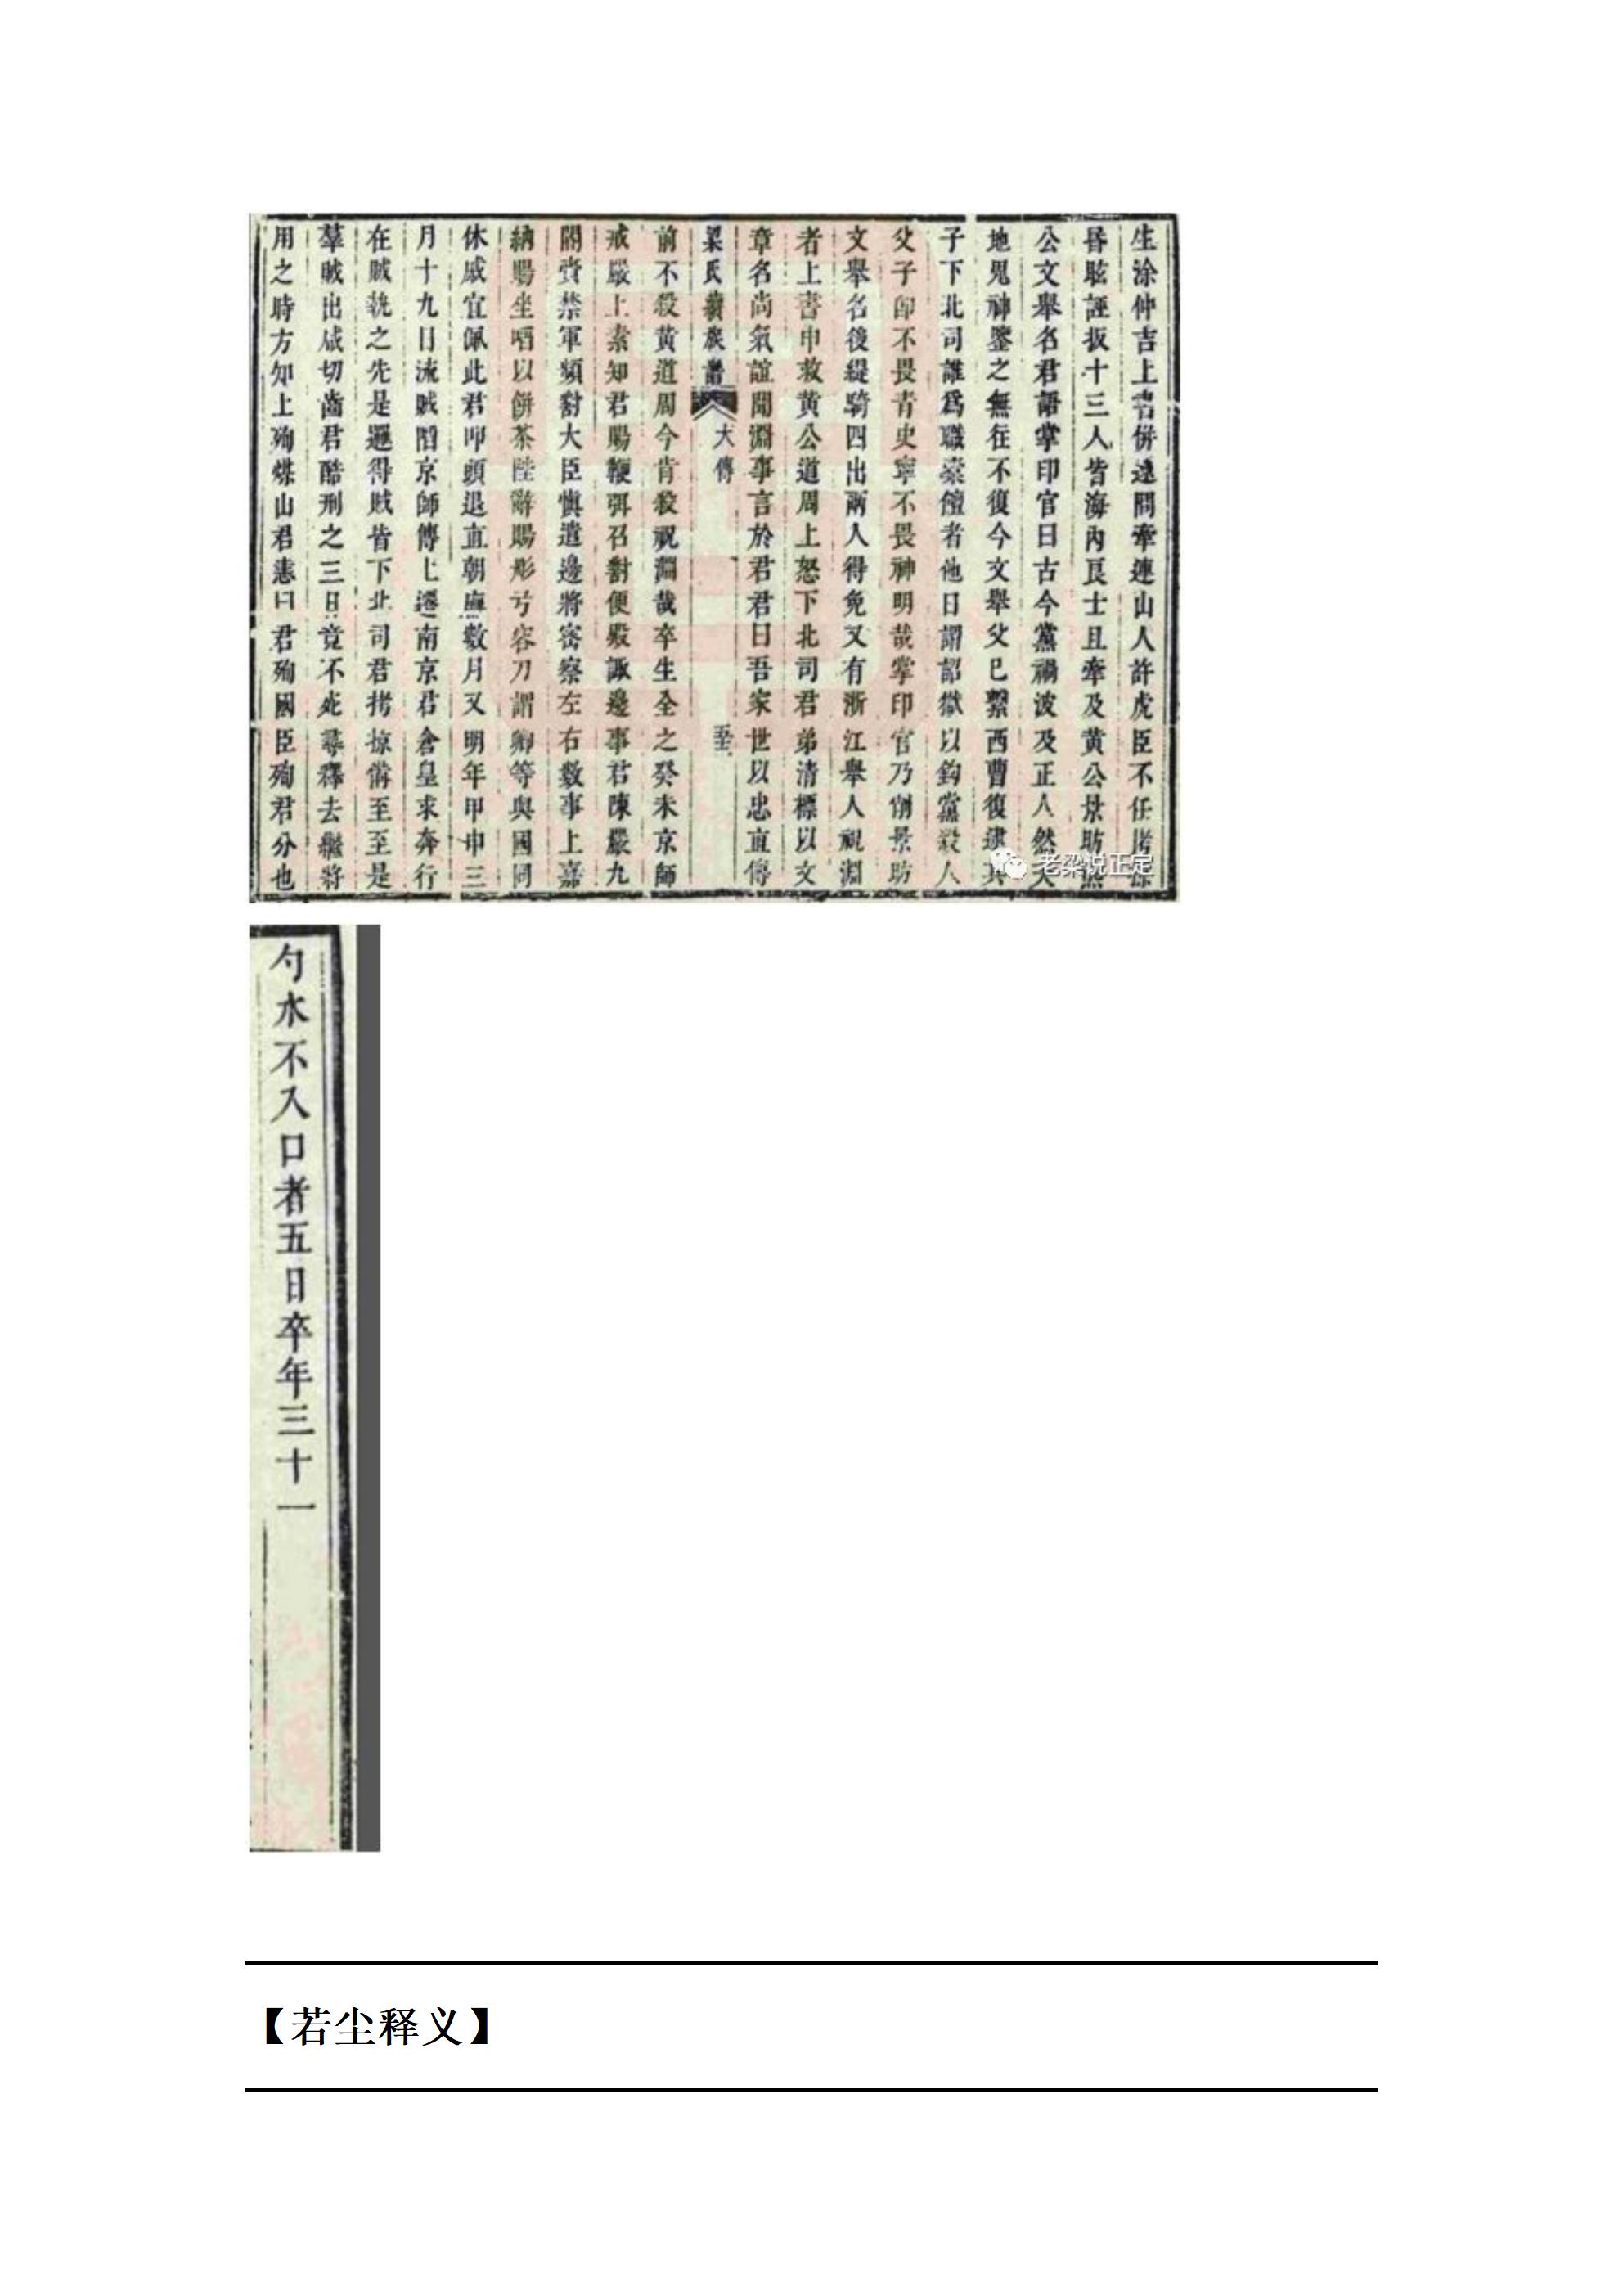 生涂仲吉上書併逮問牽連山人許虎臣不任拷
昏眩誣扳十三人皆海內良士且牽及黄公景昉
公文舉名君語掌印官曰古今黨禍波及正人然天
地鬼神鑒之無在不復今文舉父已繫西曹復逮其
子下北司誰爲職槖饘者他日謂詔獄以鈎黨殺人
父子卽不畏青史寧不畏神明哉掌印官乃削景昉
文舉名後緹騎四出兩人得免又有浙江舉人祝淵
者上書申救黄公道周上怒下北司君弟清標以文
章名尚氣誼聞淵事言於君君曰吾家世以忠直傳
梁氏族譜 大傳
前不殺黄道周今肯殺祝淵哉卒生全之癸未京師
戒嚴上素知君賜鞭弭召對便殿諏邊事君陳嚴九
閽賫禁軍頻對大臣慎遣邊將密察左右數事上嘉
納賜坐啗以餅茶陛辭賜彤弓容刀謂卿等與國同
休戚宜佩此君叩頭退直朝廡數月又明年甲申三
月十九日流賊陷京師傳上遷南京君倉皇求奔行
在賊執之先是邏得賊皆下北司君拷掠備至至是
羣賊出咸切齒君酷刑之三日竟不死尋釋去繼將
用之時方知上殉煤山君恚曰君殉國臣殉君分也
老梁说正定
勺水不入口者五日卒年三十一
【若尘释义】